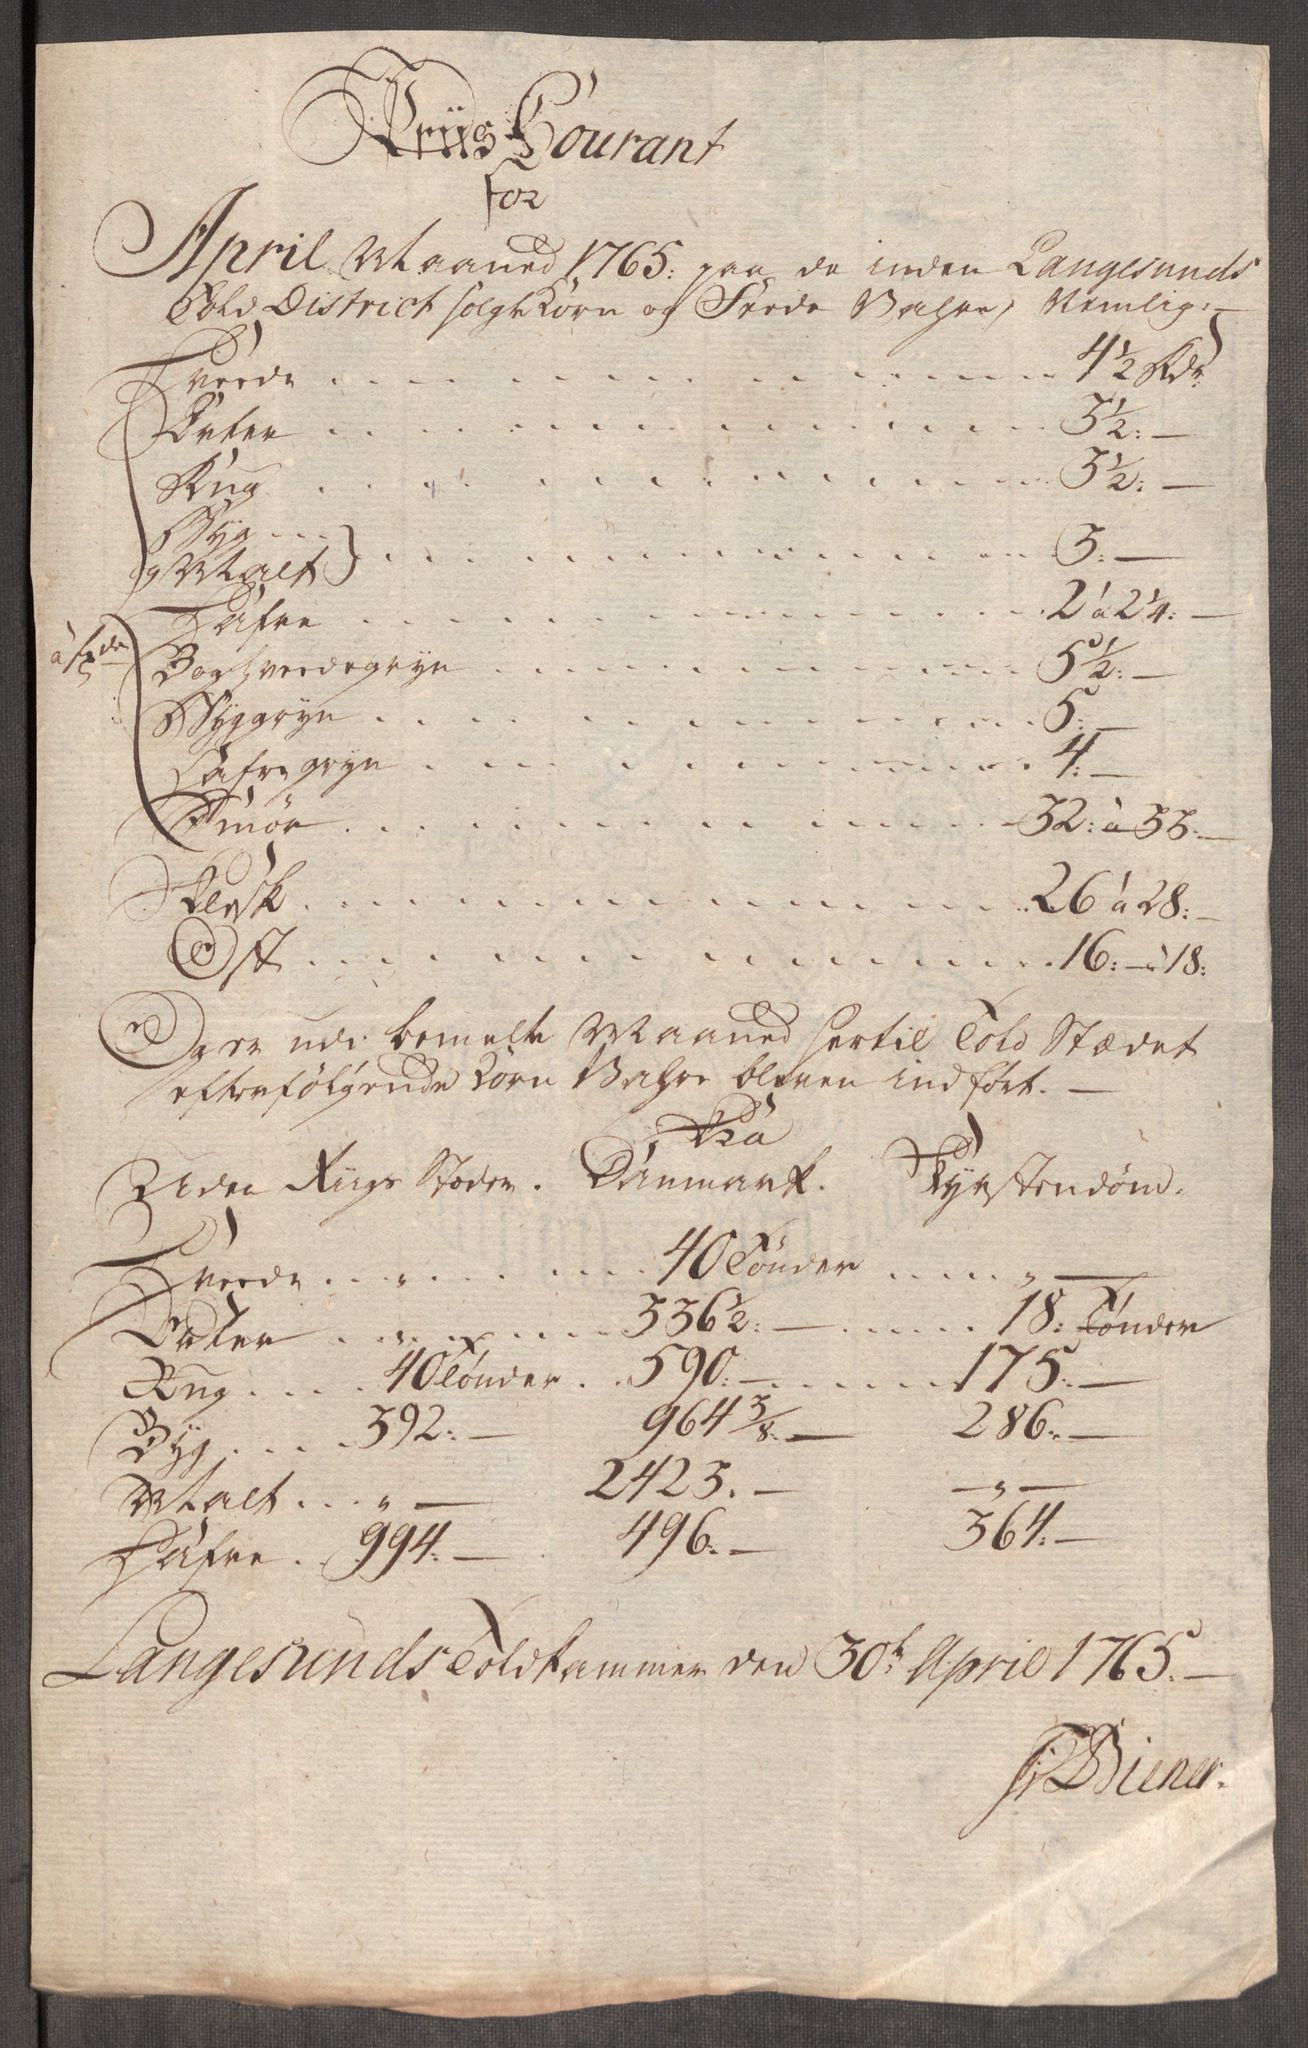 Priis Courant
for
April Maaned 1765: paa de inden Langesunds
Told District solgte Korn og Feede Vahre, Nemlig:
Hveede . . . 4½ Rdr
Erter . . . 3½:
Rug . . . 3½:
Byg . . .
og Malt } . . . 3:
Hafre . . . 2 à 2¼:
Boghveedegryn . . . 5½:
Byggryn . . . 5:
Hafre gryn . . . 4:
Smør . . . 32: à 33:
Flesk . . . 26 à 28:
Ost . . . 16: à 18:
Og er udi bemelte Maaned hertil Told Stædet
efterfølgende Korn Vahre bleven indført.
Fra
Uden Riigs Stæder. Danmark. Fyrstendøm.
Hveede . . . „ . . . 40 Tønder . . . „
Erter . . . „ . . . 336½: . . . 18: Tønder
Rug . . . 40 Tønder . . 590: . . . 175:
Byg . . . 392: 964 3/8: 286:
Malt . . . „ 2423. „
Hafre . 994: 496: 364:
Langesunds Toldkammer den 30te April 1765.
Biener.